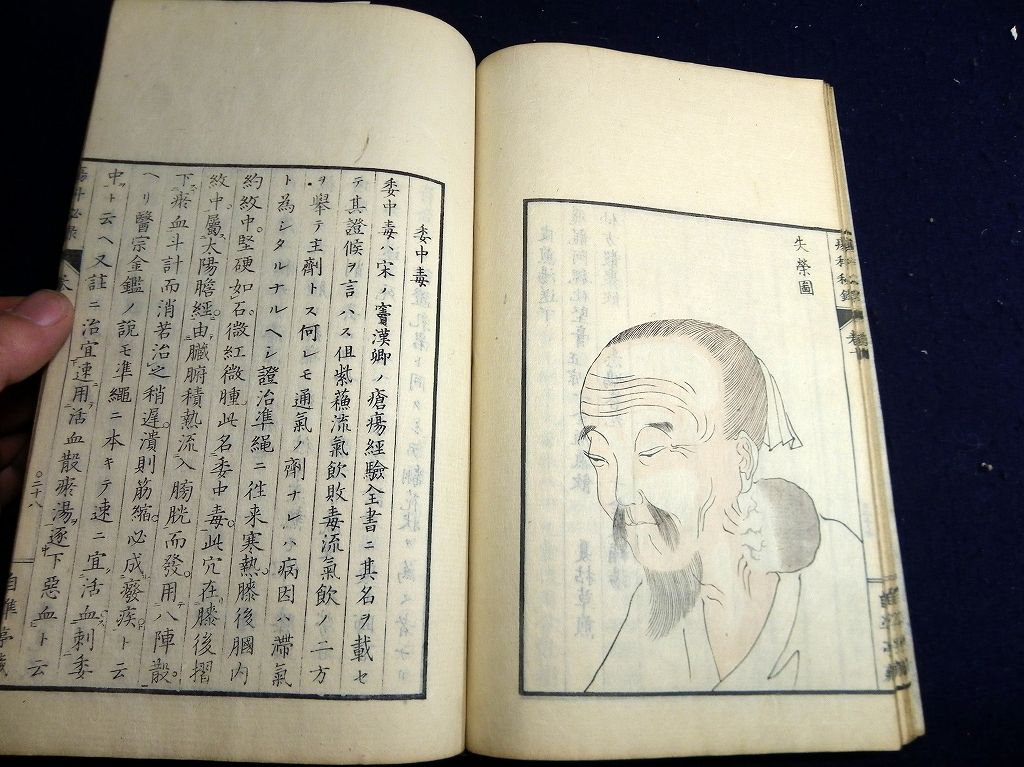 失榮圖
瘍科秘錄
委中毒
委中毒ハ宋ノ竇漢卿ノ瘡瘍經驗全書ニ其名ヲ載セ
テ其證候ヲ言ハス但紫蘓流氣飲敗毒流氣飲ノ二方
ヲ舉テ主劑トス何レモ通氣ノ劑ナレハ病因ハ滯氣
ト為シタルナルヘシ證治準繩ニ往来寒熱膝後膕内
約紋中堅硬如石微紅微腫此名委中毒此穴在膝後摺
紋中屬太陽膽經由臓腑積熱流入膀胱而發用八陣散
下瘀血斗計而消若治之稍遅潰則筋縮必成癈疾ト云
ヘリ醫宗金鑑ノ說モ準繩ニ本キテ速ニ宜活血刺委
中ト云ヘ又註ニ治宜速用活血散瘀湯逐下惡血ト云
瘍科秘錄
〇二十八
自準亭藏